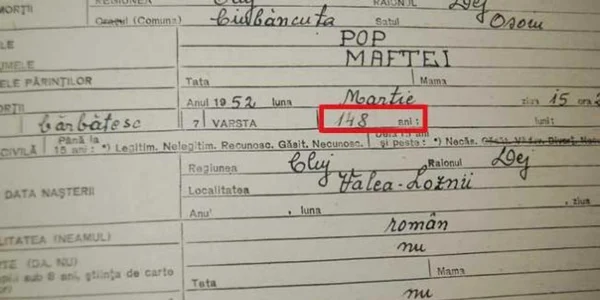 MORȚII REGIUNEA Cluj RAIONUL Dej
Orașul (Comuna) Ciubăncuța Satul Osoiu
ELE POP
UMELE MAFTEI
ELE PĂRINȚILOR Tata Mama
ORȚII Anul 1952 luna Martie ziua 15 ora
bărbătesc 7 VARSTA 148 ani: luni:
CIVILĂ Până la 15 ani: *) Legitim. Nelegitim. Recunosc. Găsit. Necunosc. și peste: *) Necăs.
Regiunea Cluj Raionul Dej
DATA NAȘTERII Localitatea Valea-Loznii
Anu' , luna , ziua
LITATEA (NEAMUL) român
TE (DA, NU) nu
sub 8 ani, știința de carte
Tata Mama
nu